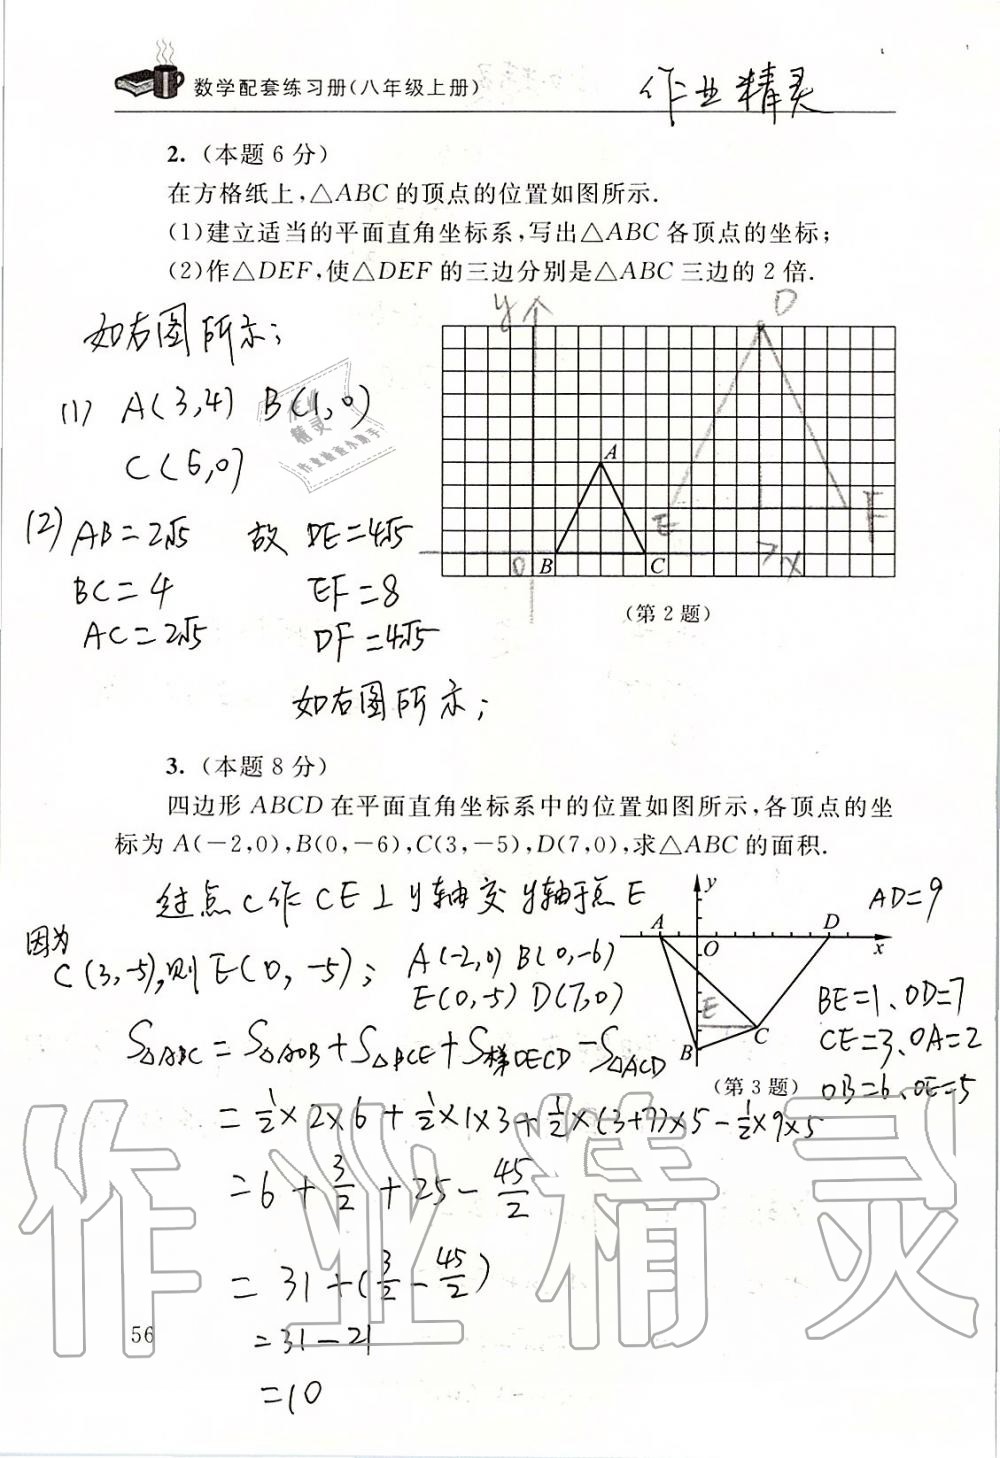 数学配套练习册(八年级上册)
作业精灵
2. (本题6分)
在方格纸上,△ABC的顶点的位置如图所示.
(1)建立适当的平面直角坐标系,写出△ABC各顶点的坐标;
(2)作△DEF,使△DEF的三边分别是△ABC三边的2倍.
如右图所示;
(1) A(3,4) B(1,0)
C(5,0)
(2) AB=2√5 故 DE=4√5
BC=4 EF=8
AC=2√5 DF=4√5
如右图所示;
y D
A
E F
O B C x
(第2题)
作业
精灵
作业检查小助手
3. (本题8分)
四边形ABCD在平面直角坐标系中的位置如图所示,各顶点的坐
标为A(-2,0),B(0,-6),C(3,-5),D(7,0),求△ABC的面积.
过点C作CE⊥y轴交y轴于点E
因为C(3,-5),则E(0,-5); A(-2,0) B(0,-6)
E(0,-5) D(7,0)
y
A D
O x
E
C
B
(第3题)
AD=9
BE=1、OD=7
CE=3、OA=2
OB=6、OE=5
S△ABC=S△AOB+S△BCE+S梯OECD-S△ACD
=½×2×6+½×1×3+½×(3+7)×5-½×9×5
=6+3/2+25-45/2
=31+(3/2-45/2)
=31-21
=10
56
作业精灵